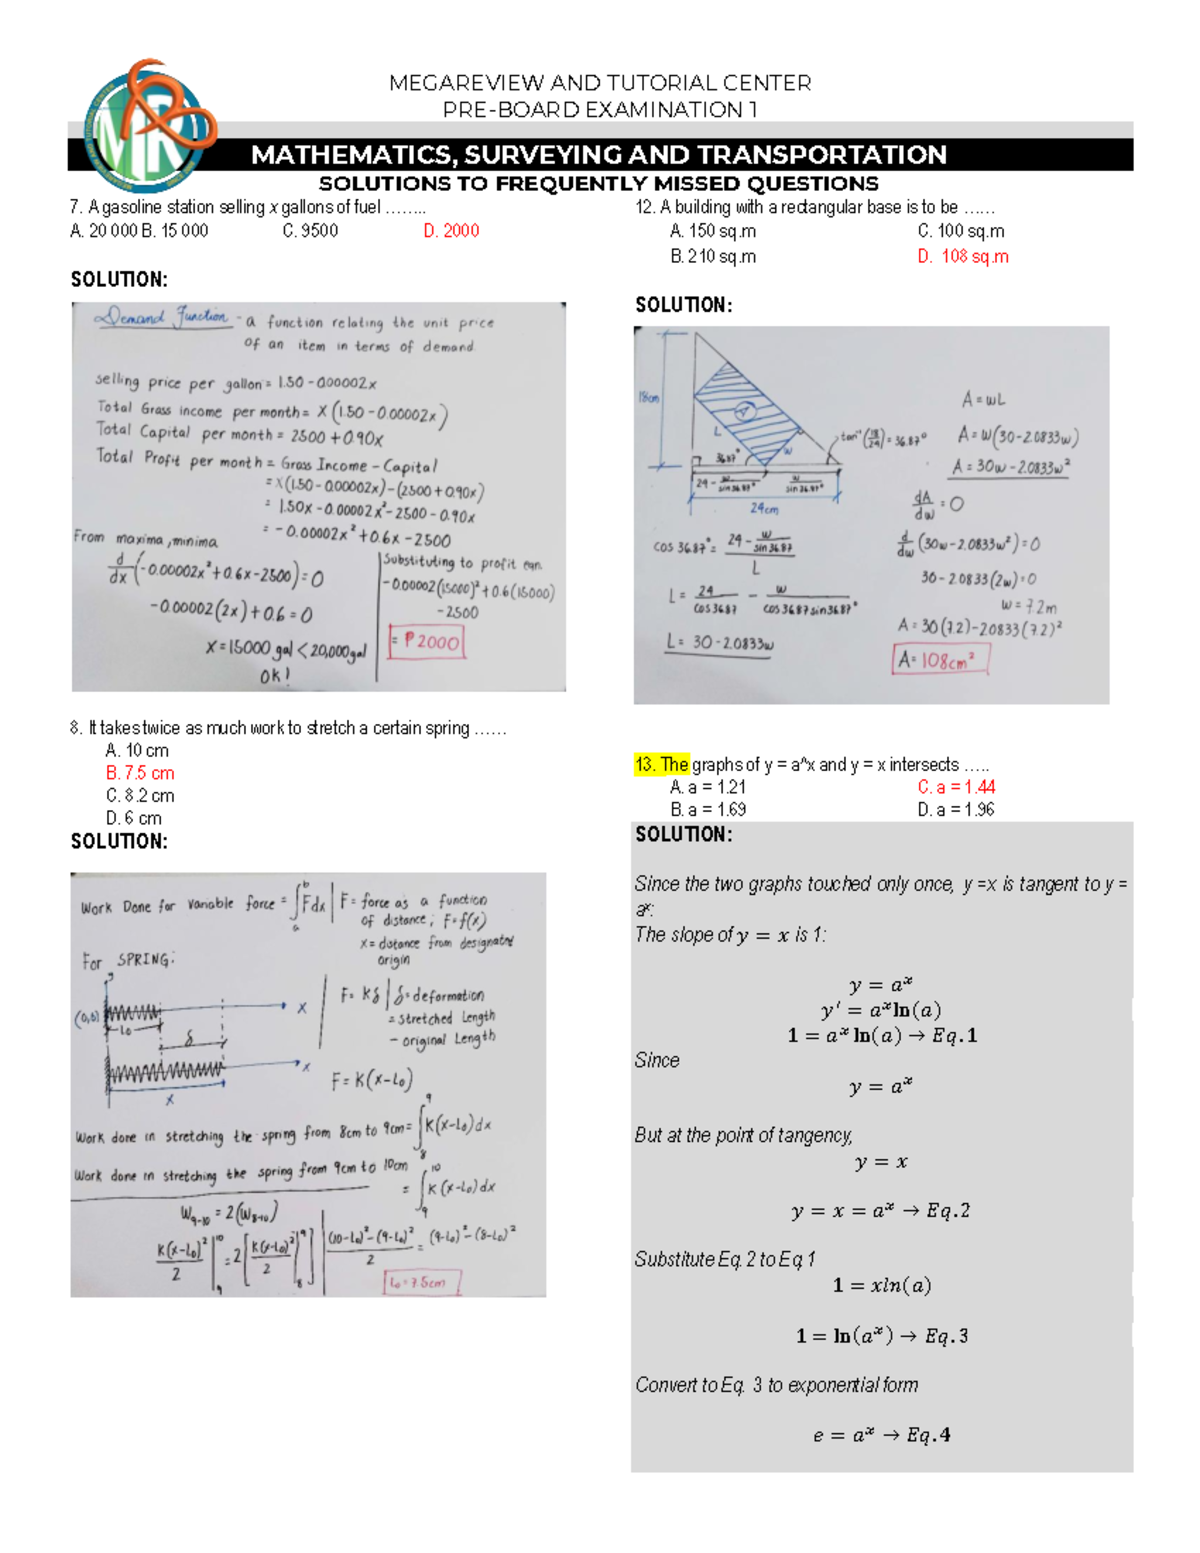 MEGAREVIEW AND TUTORIAL CENTER
PRE-BOARD EXAMINATION 1
MATHEMATICS, SURVEYING AND TRANSPORTATION
SOLUTIONS TO FREQUENTLY MISSED QUESTIONS
7. A gasoline station selling x gallons of fuel ……..
A. 20 000 B. 15 000 C. 9500 D. 2000
SOLUTION:
Demand Function - a function relating the unit price
of an item in terms of demand.
selling price per gallon = 1.50 - 0.00002x
Total Gross income per month = x(1.50 - 0.00002x)
Total Capital per month = 2500 + 0.90x
Total Profit per month = Gross Income - Capital
= x(1.50 - 0.00002x) - (2500 + 0.90x)
= 1.50x - 0.00002x² - 2500 - 0.90x
= - 0.00002x² + 0.6x - 2500
From maxima, minima
d/dx (-0.00002x² + 0.6x - 2500) = 0
-0.00002(2x) + 0.6 = 0
x = 15000 gal < 20,000 gal
OK!
Substituting to profit eqn.
-0.00002(15000)² + 0.6(15000)
-2500
= ₱2000
8. It takes twice as much work to stretch a certain spring ……
A. 10 cm
B. 7.5 cm
C. 8.2 cm
D. 6 cm
SOLUTION:
Work Done for variable force = ∫ₐᵇ F dx
F = force as a function
of distance; F = f(x)
x = distance from designated
origin
For SPRING:
y
(0,0)
Lo
δ
x
x
x
F = Kδ
δ = deformation
= stretched Length
- original Length
F = K(x-Lo)
Work done in stretching the spring from 8cm to 9cm = ∫₈⁹ K(x-Lo)dx
Work done in stretching the spring from 9cm to 10cm
= ∫₉¹⁰ K(x-Lo)dx
W₉₋₁₀ = 2(W₈₋₁₀)
K(x-Lo)²/2 |₉¹⁰ = 2[K(x-Lo)²/2 |₈⁹]
(10-Lo)² - (9-Lo)² / 2 = (9-Lo)² - (8-Lo)²
Lo = 7.5cm
12. A building with a rectangular base is to be ……
A. 150 sq.m C. 100 sq.m
B. 210 sq.m D. 108 sq.m
SOLUTION:
18cm
A
L
w
36.87°
tan⁻¹(18/24) = 36.87°
24 - w/sin36.87°
w/sin 36.87°
24cm
cos 36.87° = (24 - w/sin36.87) / L
L = 24/cos36.87 - w/cos36.87sin36.87°
L = 30 - 2.0833w
A = wL
A = w(30-2.0833w)
A = 30w - 2.0833w²
dA/dw = 0
d/dw (30w - 2.0833w²) = 0
30 - 2.0833(2w) = 0
w = 7.2m
A = 30(7.2) - 2.0833(7.2)²
A = 108cm²
13. The graphs of y = a^x and y = x intersects …..
A. a = 1.21 C. a = 1.44
B. a = 1.69 D. a = 1.96
SOLUTION:
Since the two graphs touched only once, y =x is tangent to y =
aˣ:
The slope of y = x is 1:
y = aˣ
y′ = aˣ ln(a)
1 = aˣ ln(a) → Eq.1
Since
y = aˣ
But at the point of tangency,
y = x
y = x = aˣ → Eq.2
Substitute Eq. 2 to Eq 1
1 = xln(a)
1 = ln(aˣ) → Eq.3
Convert to Eq. 3 to exponential form
e = aˣ → Eq.4